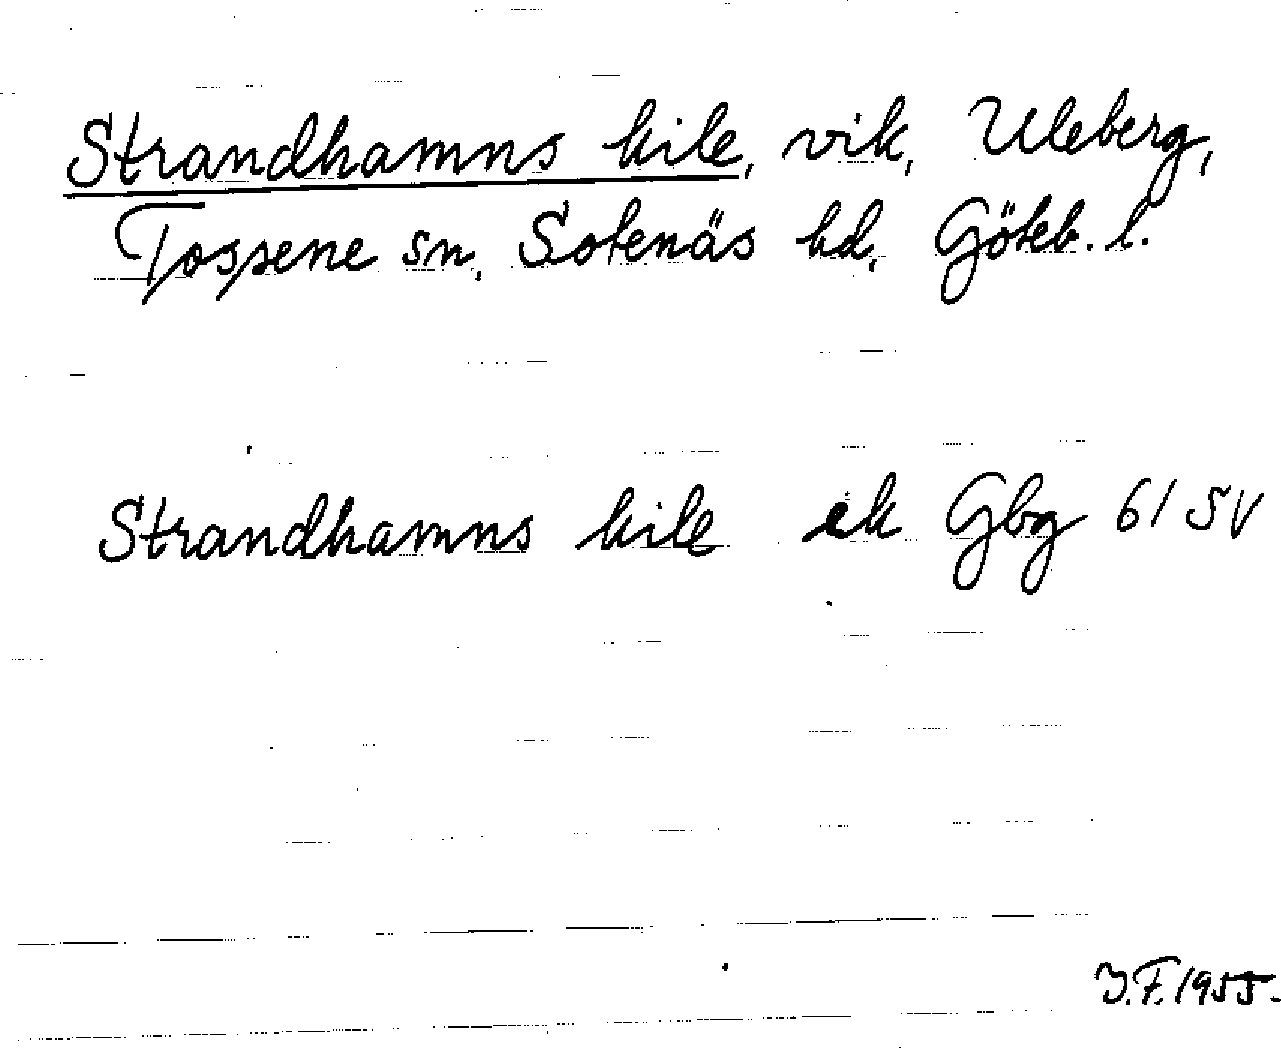 Strandhamns kile, vik, Uleberg,
Tossene sn, Sotenäs hd, Göteb. l.
Strandhamns kile ek Gbg 61 SV
J.F. 1955.